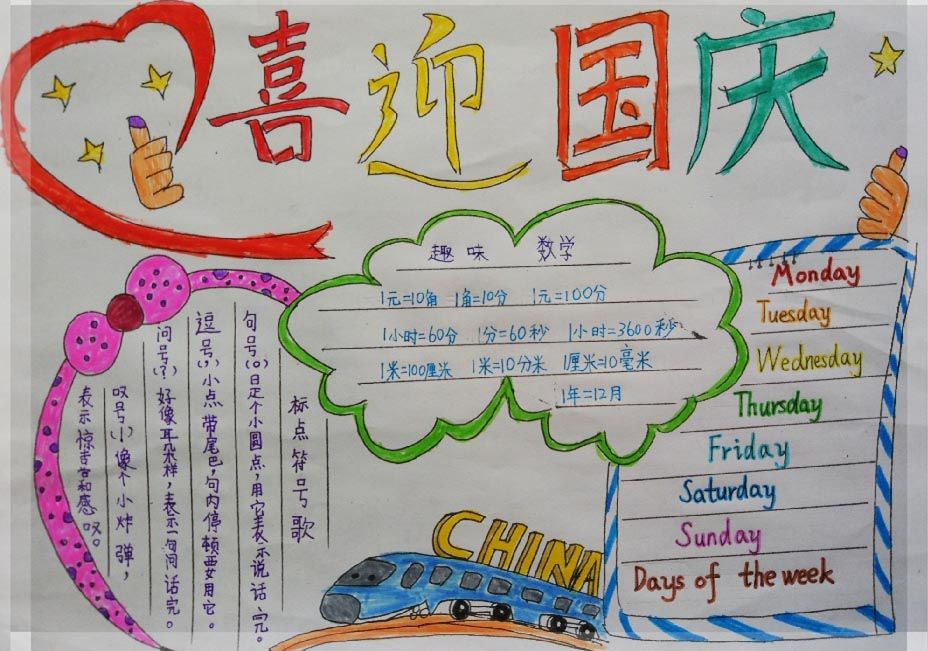 喜迎国庆
趣味 数学
1元=10角 1角=10分 1元=100分
1小时=60分 1分=60秒 1小时=3600秒
1米=100厘米 1米=10分米 1厘米=10毫米
1年=12月
标点符号歌
句号(。)是个小圆点,用它表示说话完。
逗号(,)小点带尾巴,句内停顿要用它。
问号(?)好像耳朵样,表示一句问话完。
叹号(!)像个小炸弹,
表示惊喜和感叹。
CHINA
Monday
Tuesday
Wednesday
Thursday
Friday
Saturday
Sunday
Days of the week